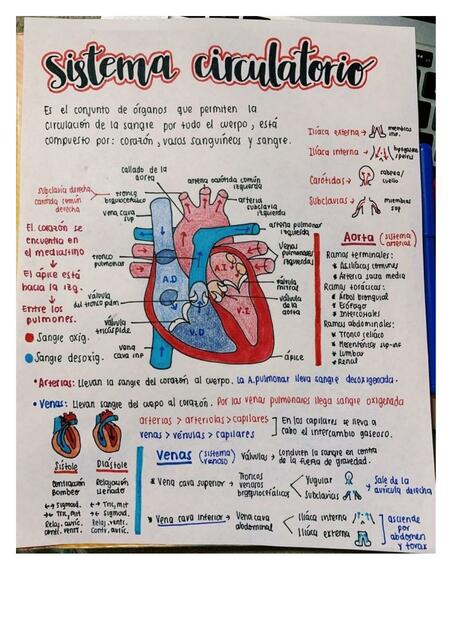 Sistema circulatorio
Es el conjunto de órganos que permiten la
circulación de la sangre por todo el cuerpo, está
compuesto por: corazón, vasos sanguíneos y sangre.
Ilíaca externa → miembros inf.
Ilíaca interna →
Carótidas → cabeza/
cuello
Subclavias → miembros
sup
callado de la
aorta
arteria carótida común
izquierda
subclavia derecha
carótida común
derecha
tronco
braquiocefálico
arteria
subclavia
izquierda
vena cava
sup
arteria pulmonar
izquierda
tronco
pulmonar
Venas
pulmonares
izquierdas
A.D
A.I
V.D
V.I
válvula
del tronco pulm.
válvula
tricúspide
vena
cava inf
válvula
mitral
válvula
de la
aorta
ápice
El corazón se
encuentra en
el mediastino
↓
El ápice está
hacia la izq.
↓
Entre los
pulmones.
Sangre oxig.
Sangre desoxig.
Aorta (sistema
arterial)
Ramas terminales:
Arteria sacra media
Ramas torácicas:
Árbol bronquial
Esófago
Intercostales
Ramas abdominales:
Tronco celíaco
Mesentéricas sup-inf
Lumbar
Renal
• Arterias: Llevan la sangre del corazón al cuerpo. la A.pulmonar lleva sangre desoxigenada.
• Venas: Llevan sangre del cuerpo al corazón. Por las venas pulmonares llega sangre oxigenada
arterias > arteriolas > capilares
venas > vénulas > capilares
En los capilares se lleva a
cabo el intercambio gaseoso.
Sístole
Contracción
Bombeo
←→ Sigmoid.
→← Tric, mit.
Relaj. auríc.
Contr. ventr.
Diástole
Relajación
llenado
←→ Tric, mit.
→← Sigmoid.
Relaj. ventr.
Contr. auríc.
Venas (sistema
venoso)
Válvulas → Conducen la sangre en contra
de la fuerza de gravedad.
* Vena cava superior → Troncos
venosos
braquiocefálicos
Yugular
Subclavias
→ Sale de la
aurícula derecha
* Vena cava inferior → Vena cava
abdominal
Ilíaca interna
Ilíaca externa
asciende
por
abdomen
y tórax